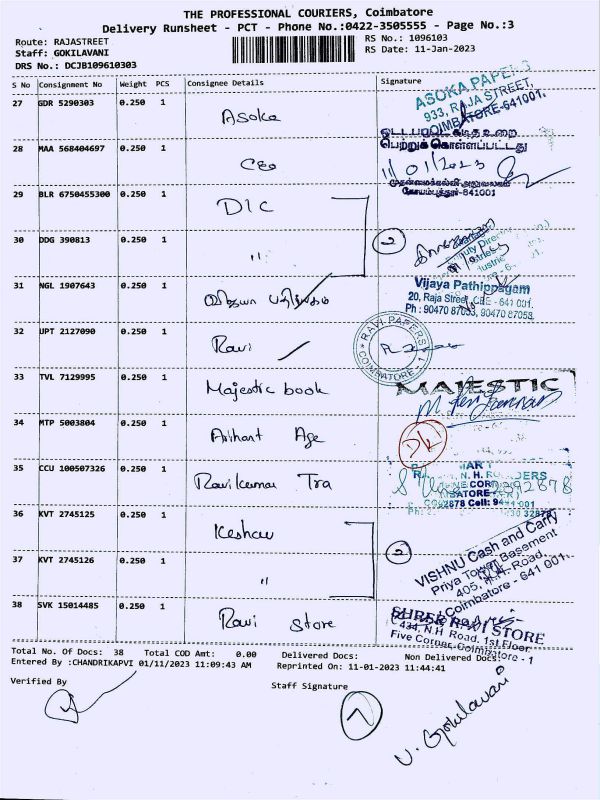 THE PROFESSIONAL COURIERS, Coimbatore
Delivery Runsheet - PCT - Phone No.:0422-3505555 - Page No.:3
Route: RAJASTREET
RS No.: 1096103
Staff: GOKILAVANI
RS Date: 11-Jan-2023
DRS No.: DCJB109610303
S No Consignment No Weight PCS Consignee Details Signature
27 GDR 5290303 0.250 1 Asoka
ASOKA PAPERS
933, RAJA STREET,
COIMBATORE-641001.
28 MAA 568404697 0.250 1 CEO
பெற்றுக் கொள்ளப்பட்டது
11/01/2023
முதன்மைக்கல்வி அலுவலகம்
கோயம்புத்தூர்-641001
29 BLR 6750455300 0.250 1 DIC
30 DDG 390813 0.250 1 "
2
31 NGL 1907643 0.250 1 விஜயா பதிப்பகம்
Vijaya Pathippagam
20, Raja Street, CBE - 641 001.
Ph : 90470 87053, 90470 87058
32 UPT 2127090 0.250 1 Ravi
RAVI PAPERS
COIMBATORE - 1
33 TVL 7129995 0.250 1 Majestic book
MAJESTIC
34 MTP 5003804 0.250 1 Arihant Age
35 CCU 100507326 0.250 1 Ravikumar Tra
36 KVT 2745125 0.250 1 Keshav
37 KVT 2745126 0.250 1 "
2
VISHNU Cash and Carry
Priya Tower Basement
405, N.H. Road,
Coimbatore - 641 001.
38 SVK 15014485 0.250 1 Ravi Store
SHREE RAVI STORE
434, N.H Road, 1st Floor
Five Corner, Coimbatore - 1
Total No. Of Docs: 38 Total COD Amt: 0.00 Delivered Docs: Non Delivered Docs:
Entered By :CHANDRIKAPVI 01/11/2023 11:09:43 AM Reprinted On: 11-01-2023 11:44:41
Verified By
Staff Signature
V. Gokilavani